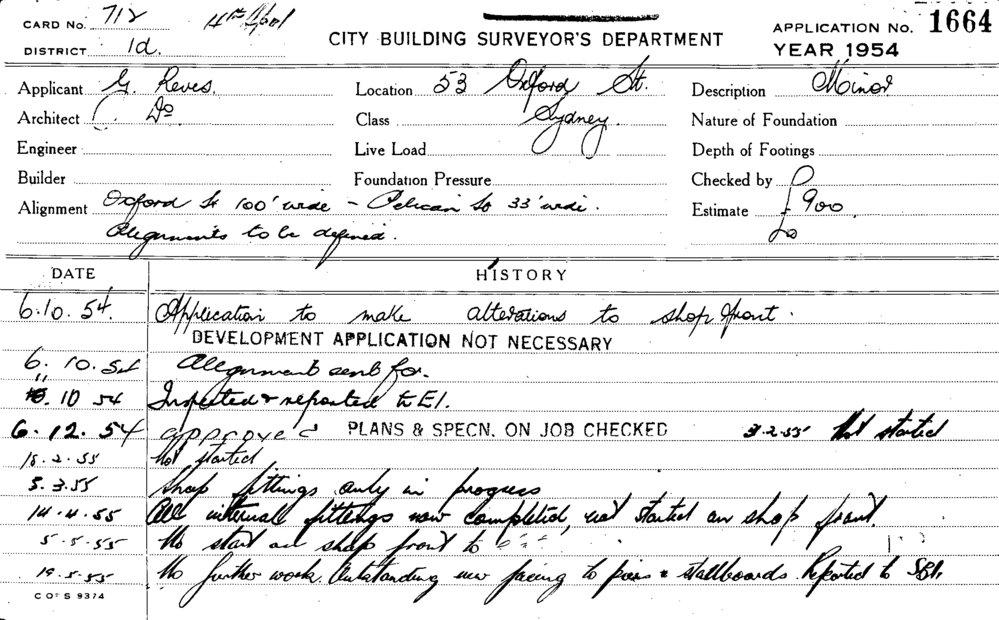 CARD No. 712
DISTRICT 1d.
CITY BUILDING SURVEYOR'S DEPARTMENT
APPLICATION No. 1664
YEAR 1954
Applicant G. Reves. Location 53 Oxford St. Description Minor
Architect Do Class Sydney. Nature of Foundation
Engineer Live Load Depth of Footings
Builder Foundation Pressure Checked by
Alignment Oxford St 100' wide – Pelican St 33' wide. Estimate £900
Alignments to be defined.
DATE HISTORY
6.10.54. Application to make alterations to shop front.
DEVELOPMENT APPLICATION NOT NECESSARY
6.10.54 Alignment sent for.
10 54 Inspected & reported to E1.
6.12.54 approved PLANS & SPECN. ON JOB CHECKED 3.2.55 Not started
18.2.55 Not started
5.3.55 Shop fittings only in progress
14.4.55 All internal fittings now completed, not started on shop front.
5.5.55 No start on shop front to
19.5.55 No further work. Outstanding new facing to piers & stallboards. Reported to
C OF S 9374